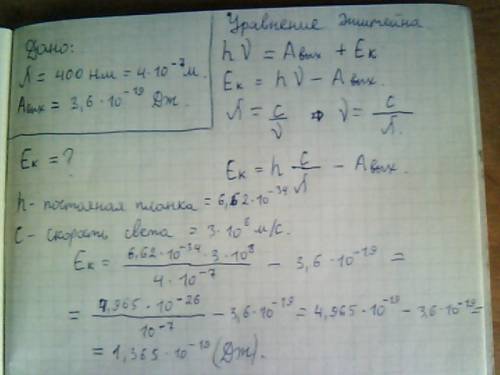 Дано:
Λ = 400 нм = 4·10⁻⁷ м.
Aвых = 3,6·10⁻¹⁹ Дж.
Eк = ?
Уравнение Эйнштейна
hν = Aвых + Eк
Eк = hν − Aвых.
Λ = c/ν ⇒ ν = c/Λ.
Eк = h c/Λ − Aвых.
h - постоянная планка = 6,62·10⁻³⁴
C - скорость света = 3·10⁸ м/с.
Eк = (6,62·10⁻³⁴·3·10⁸)/(4·10⁻⁷) − 3,6·10⁻¹⁹ =
= (4,965·10⁻²⁶)/(10⁻⁷) − 3,6·10⁻¹⁹ = 4,965·10⁻¹⁹ − 3,6·10⁻¹⁹ =
= 1,365·10⁻¹⁹ (Дж).